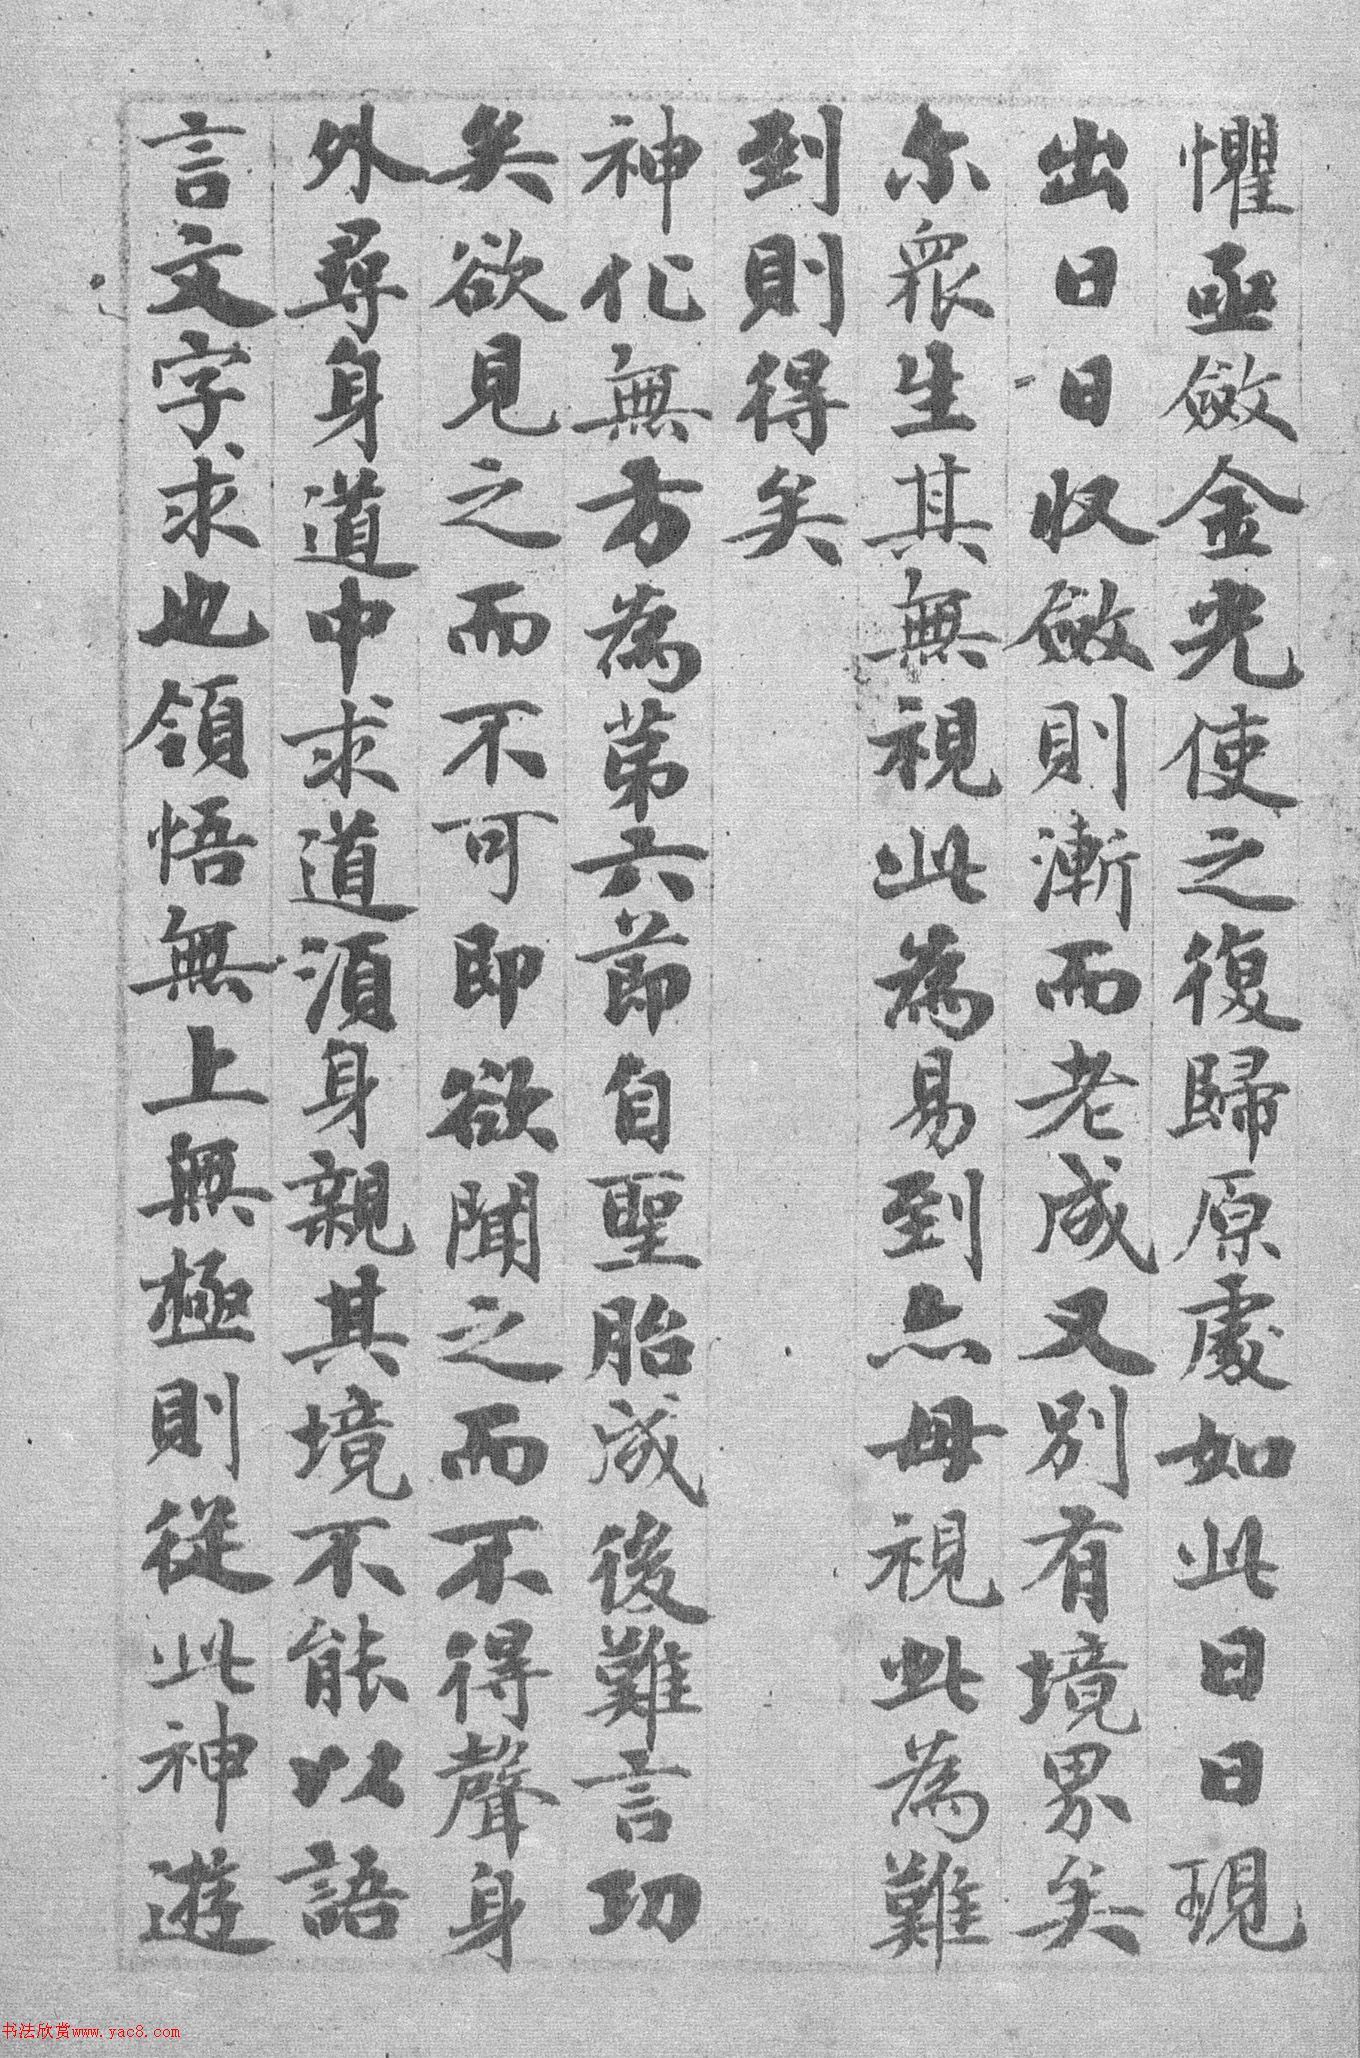 懼亟斂金光使之復歸原處如此日日現
出日日收斂則漸而老成又別有境界矣
尔衆生其無視此為易到亦毋視此為難
到則得矣
神化無方為第六節自聖胎成後難言功
矣欲見之而不可即欲聞之而不得聲身
外尋身道中求道須身親其境不能以語
言文字求也領悟無上無極則從此神遊
书法欣赏www.yac8.com